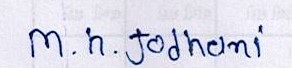 M. h. Jodhani